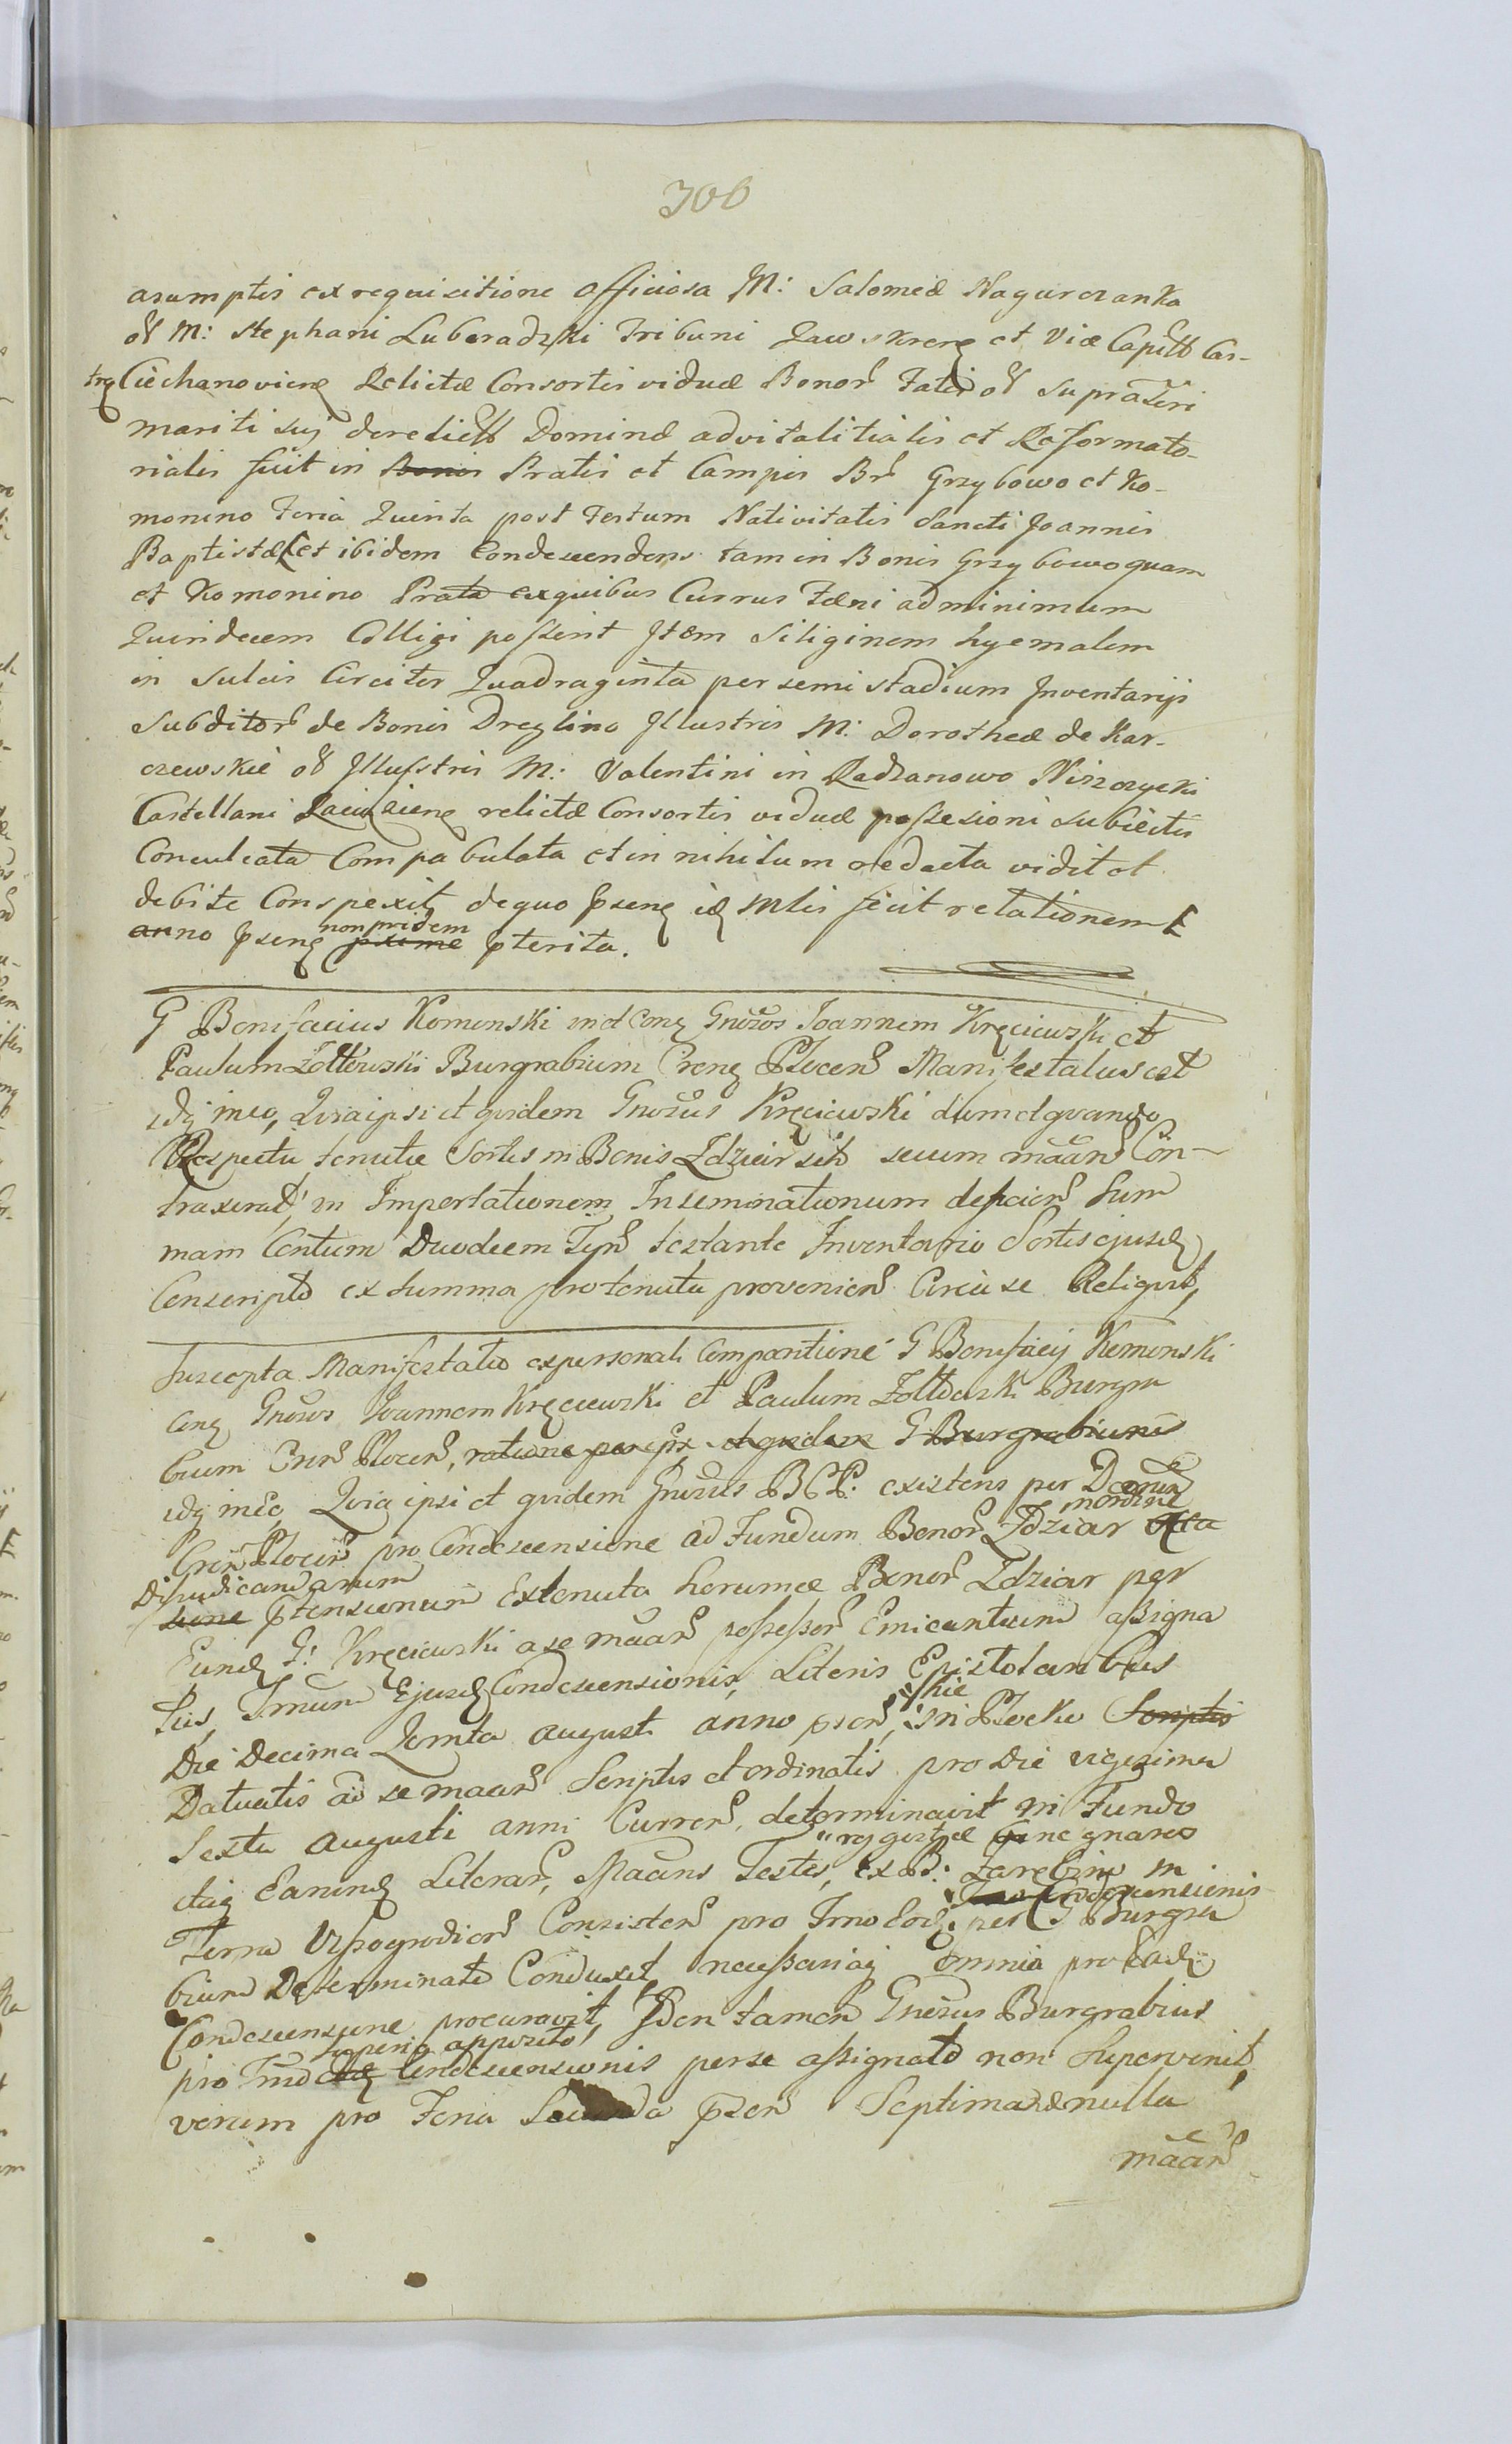 306
asumptis ex requisitione officiosa M: Salomeæ Nagurczanka
ol M: Stephani Luberadzki Tribuni Zawskrens et Vice Capitt Cas-
trs Ciechanoviens Relictæ Consortis viduæ Bonor
mariti sui derelictt Dominæ advitalitialis et Reformato-
rialis fuit in Bonis Pratis et Campis Br Grzybowo et Ko-
monino Feria Quinta post Festum Nativitatis Sancti Joannis
Baptistæ et ibidem Condescendens tam in Bonis Grzybowo quam
et Komonino Prata ex quibus Currus Fæni ad minimum
Quindecem Colligi possent Item Siliginem hyemalem
in Sulcis Circiter Quadraginta per semi stadium Inventarÿs
Subditor de Bonis Dreglino Illustris M: Dorotheæ de Kar-
czewskie ol Illustris M: Valentini in Radzanowo Niszczycki
Castellani Raciąziens relictæ Consortis viduæ possesioni subiectis
Conculcata Compabulata et in nihilum redacta vidit et
debite Conspexit, de quo psens id Mtis fecit relationem
non pridem
anno psens pxime pterita.
G Bonifacius Komonski in et cons Gnosos Joannem Kręciewski et
Paulum Zołtowski Burgrabium Crens Plocen Manifestatus est
idq ineo, Quia ipsi et quidem Gnosus Kręciewski dum et quando
Respectu tenutæ Sortis in Bonis Zdziar secum maan Con-
traxerat, in Importationem Inseminationum deficien Sum
mam Centum Duodecem Tyn testante Inventario Sortis ejusd
Conscripto ex Summa pro tenuta provenien Circa se Reliquit,
Suscepta Manifestatio ex personali Compantione G Bonifacij Komonski
cons Gnosos Joannem Kręciewski et Paulum Zołtowski Burgra
bium Cren Plocen, ratione et quidem G Burgrabium
idq ineo, Quia ipsi et quidem Gnosus B C P: existens per
in ordine
Cren Plocen pro Condescensione ad Fundum Bonor Zdziar
Dijudicandarum
sione ptensionum Ex tenuta horumce Bonor Zdziar per
Eund G: Kręciewski a se maan possessor Emicantium assigna
tus, Tmum Ejusd Condescensionis, Literis Epistolaribus
hic
Die Decima Quinta augusti anno psen, in Plocko Scriptis
Datuatis ad se maan Scriptis et ordinatis pro Die vigesima
Sexta Augusti anni Curren, determinavit in Fundo
rei gestæ gnaros
ctaq Earund Literar, Maans Testes, ex B: Zarebiny in
Condescensionis
Terra Wyszogrodien Consisten pro Tmo Eod per G Burgra
bium Determinato Conduxit necessariaq omnia pro Ead
Condescensione procuravit, Iden tamen Gnosus Burgrabius
superius apposito
pro Tmo Condescensionis per se assignato non Supervenit,
verum pro Feria Secunda psen Septimanæ nulla
maan